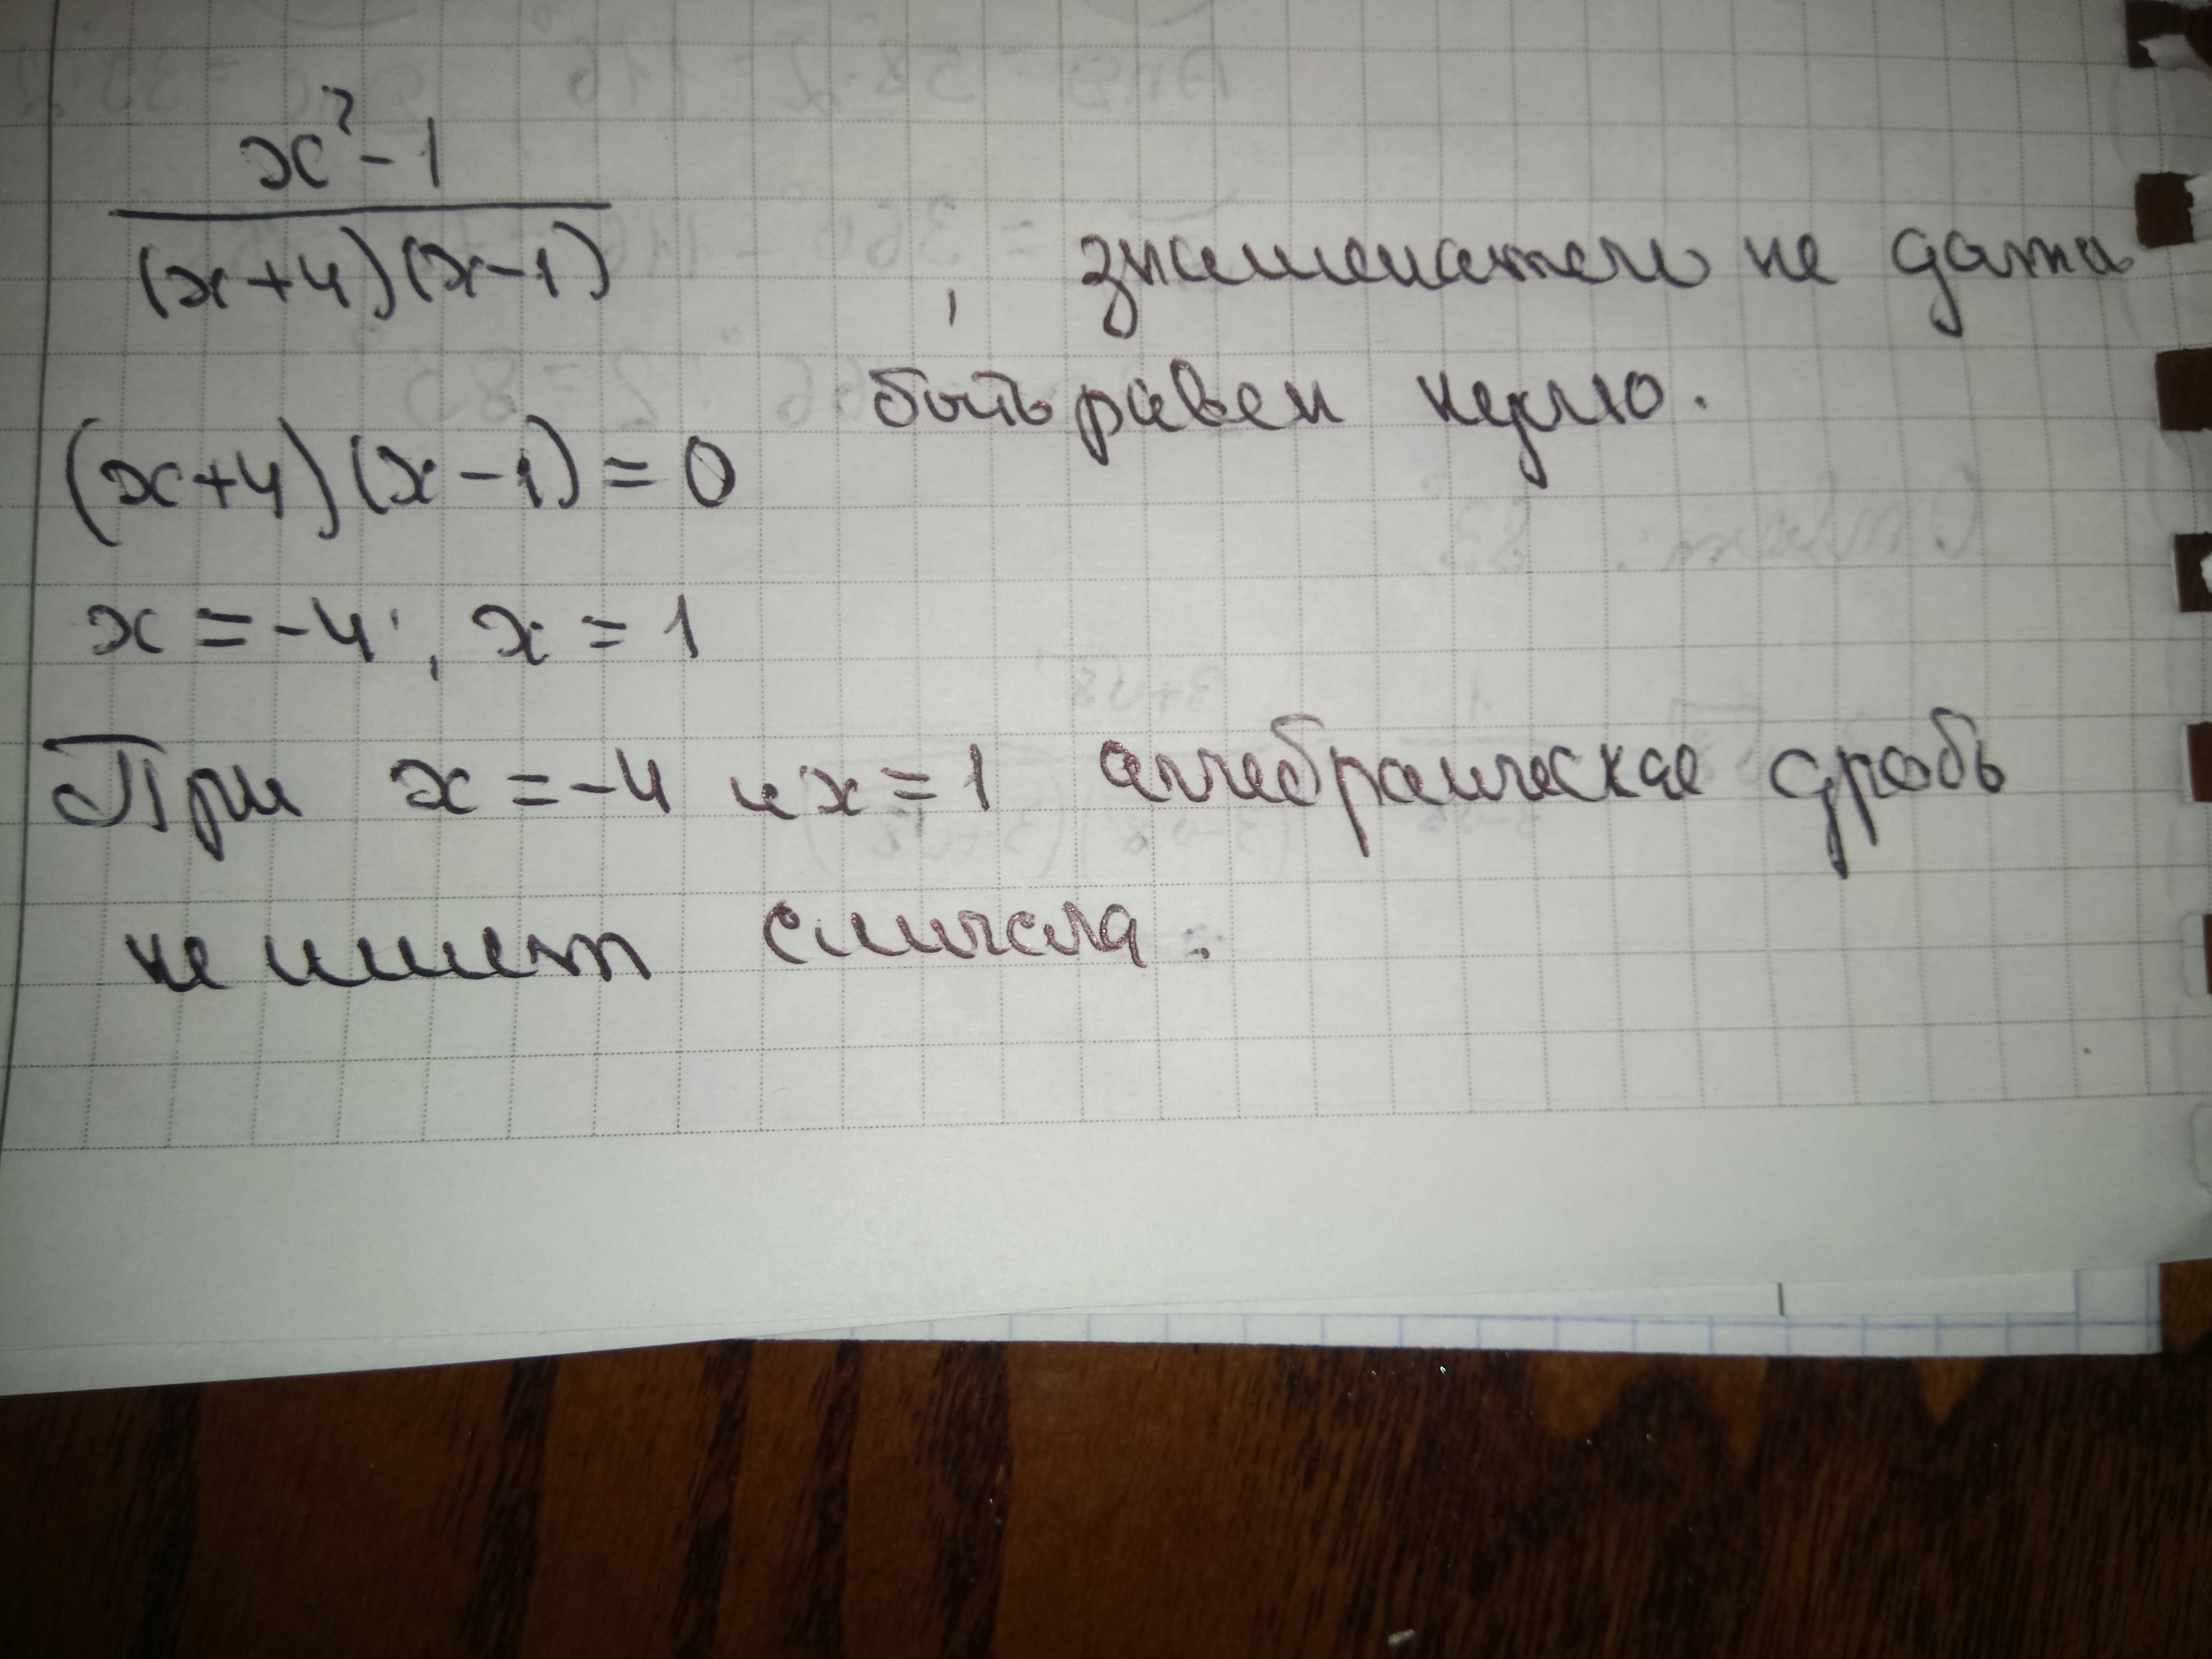 x² - 1
(x+4)(x-1) , знаменатель не должен
быть равен нулю.
(x+4)(x-1) = 0
x = -4 ; x = 1
При x = -4 и x = 1 алгебраическая дробь
не имеет смысла.